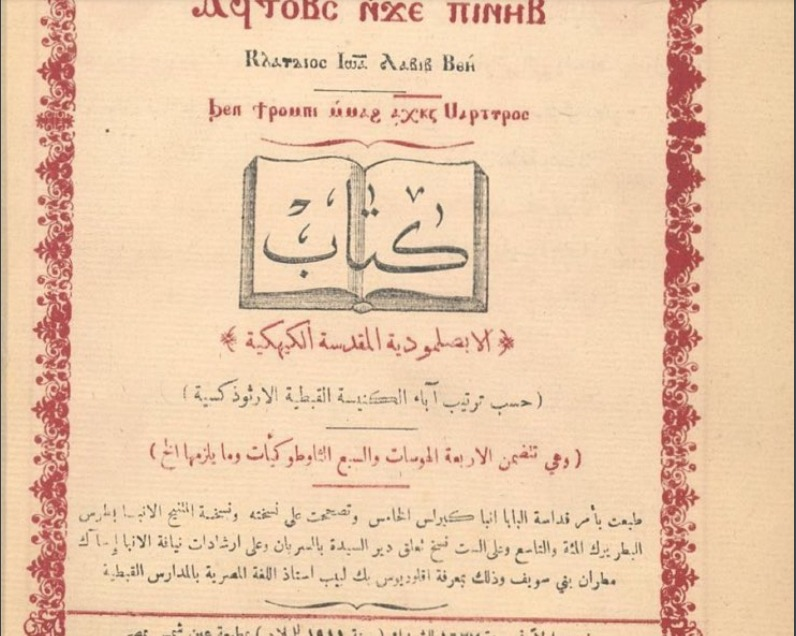 ⲁϥⲧⲟⲃⲥ ⲛ̀ϫⲉ ⲡⲓⲛⲏⲃ
Ⲕⲗⲁⲩⲇⲓⲟⲥ Ⲓⲱ̅ⲁ̅ Ⲗⲁⲃⲓⲃ
ϧⲉⲛ ϯⲣⲟⲙⲡⲓ
كتاب
الابصلمودية المقدسة الكيهكية
(حسب ترتيب آباء الكنيسة القبطية الارثوذكسية)
(وهي تتضمن الاربعة الهوسات والسبع الثاوطوكيات وما يلزمها الخ)
طبعت بأمر قداسة البابا انبا كيرلس الخامس وتصححت على نسخته ونسخة المتنيح الانبا بطرس
البطريرك المئة والتاسع وعلى الست نسخ تعلق دير السيدة بالسريان وعلى ارشادات نيافة الانبا إيساك
مطران بني سويف وذلك بمعرفة اقلوديوس بك لبيب استاذ اللغة المصرية بالمدارس القبطية